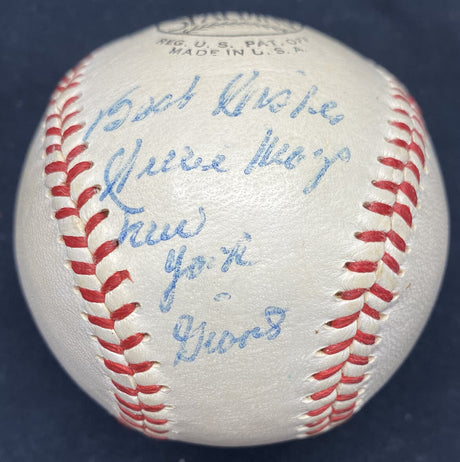 REG. U. S. PAT. OFF.
MADE IN U.S.A.
Best Wishes
Willie Mays
New
York
Giants